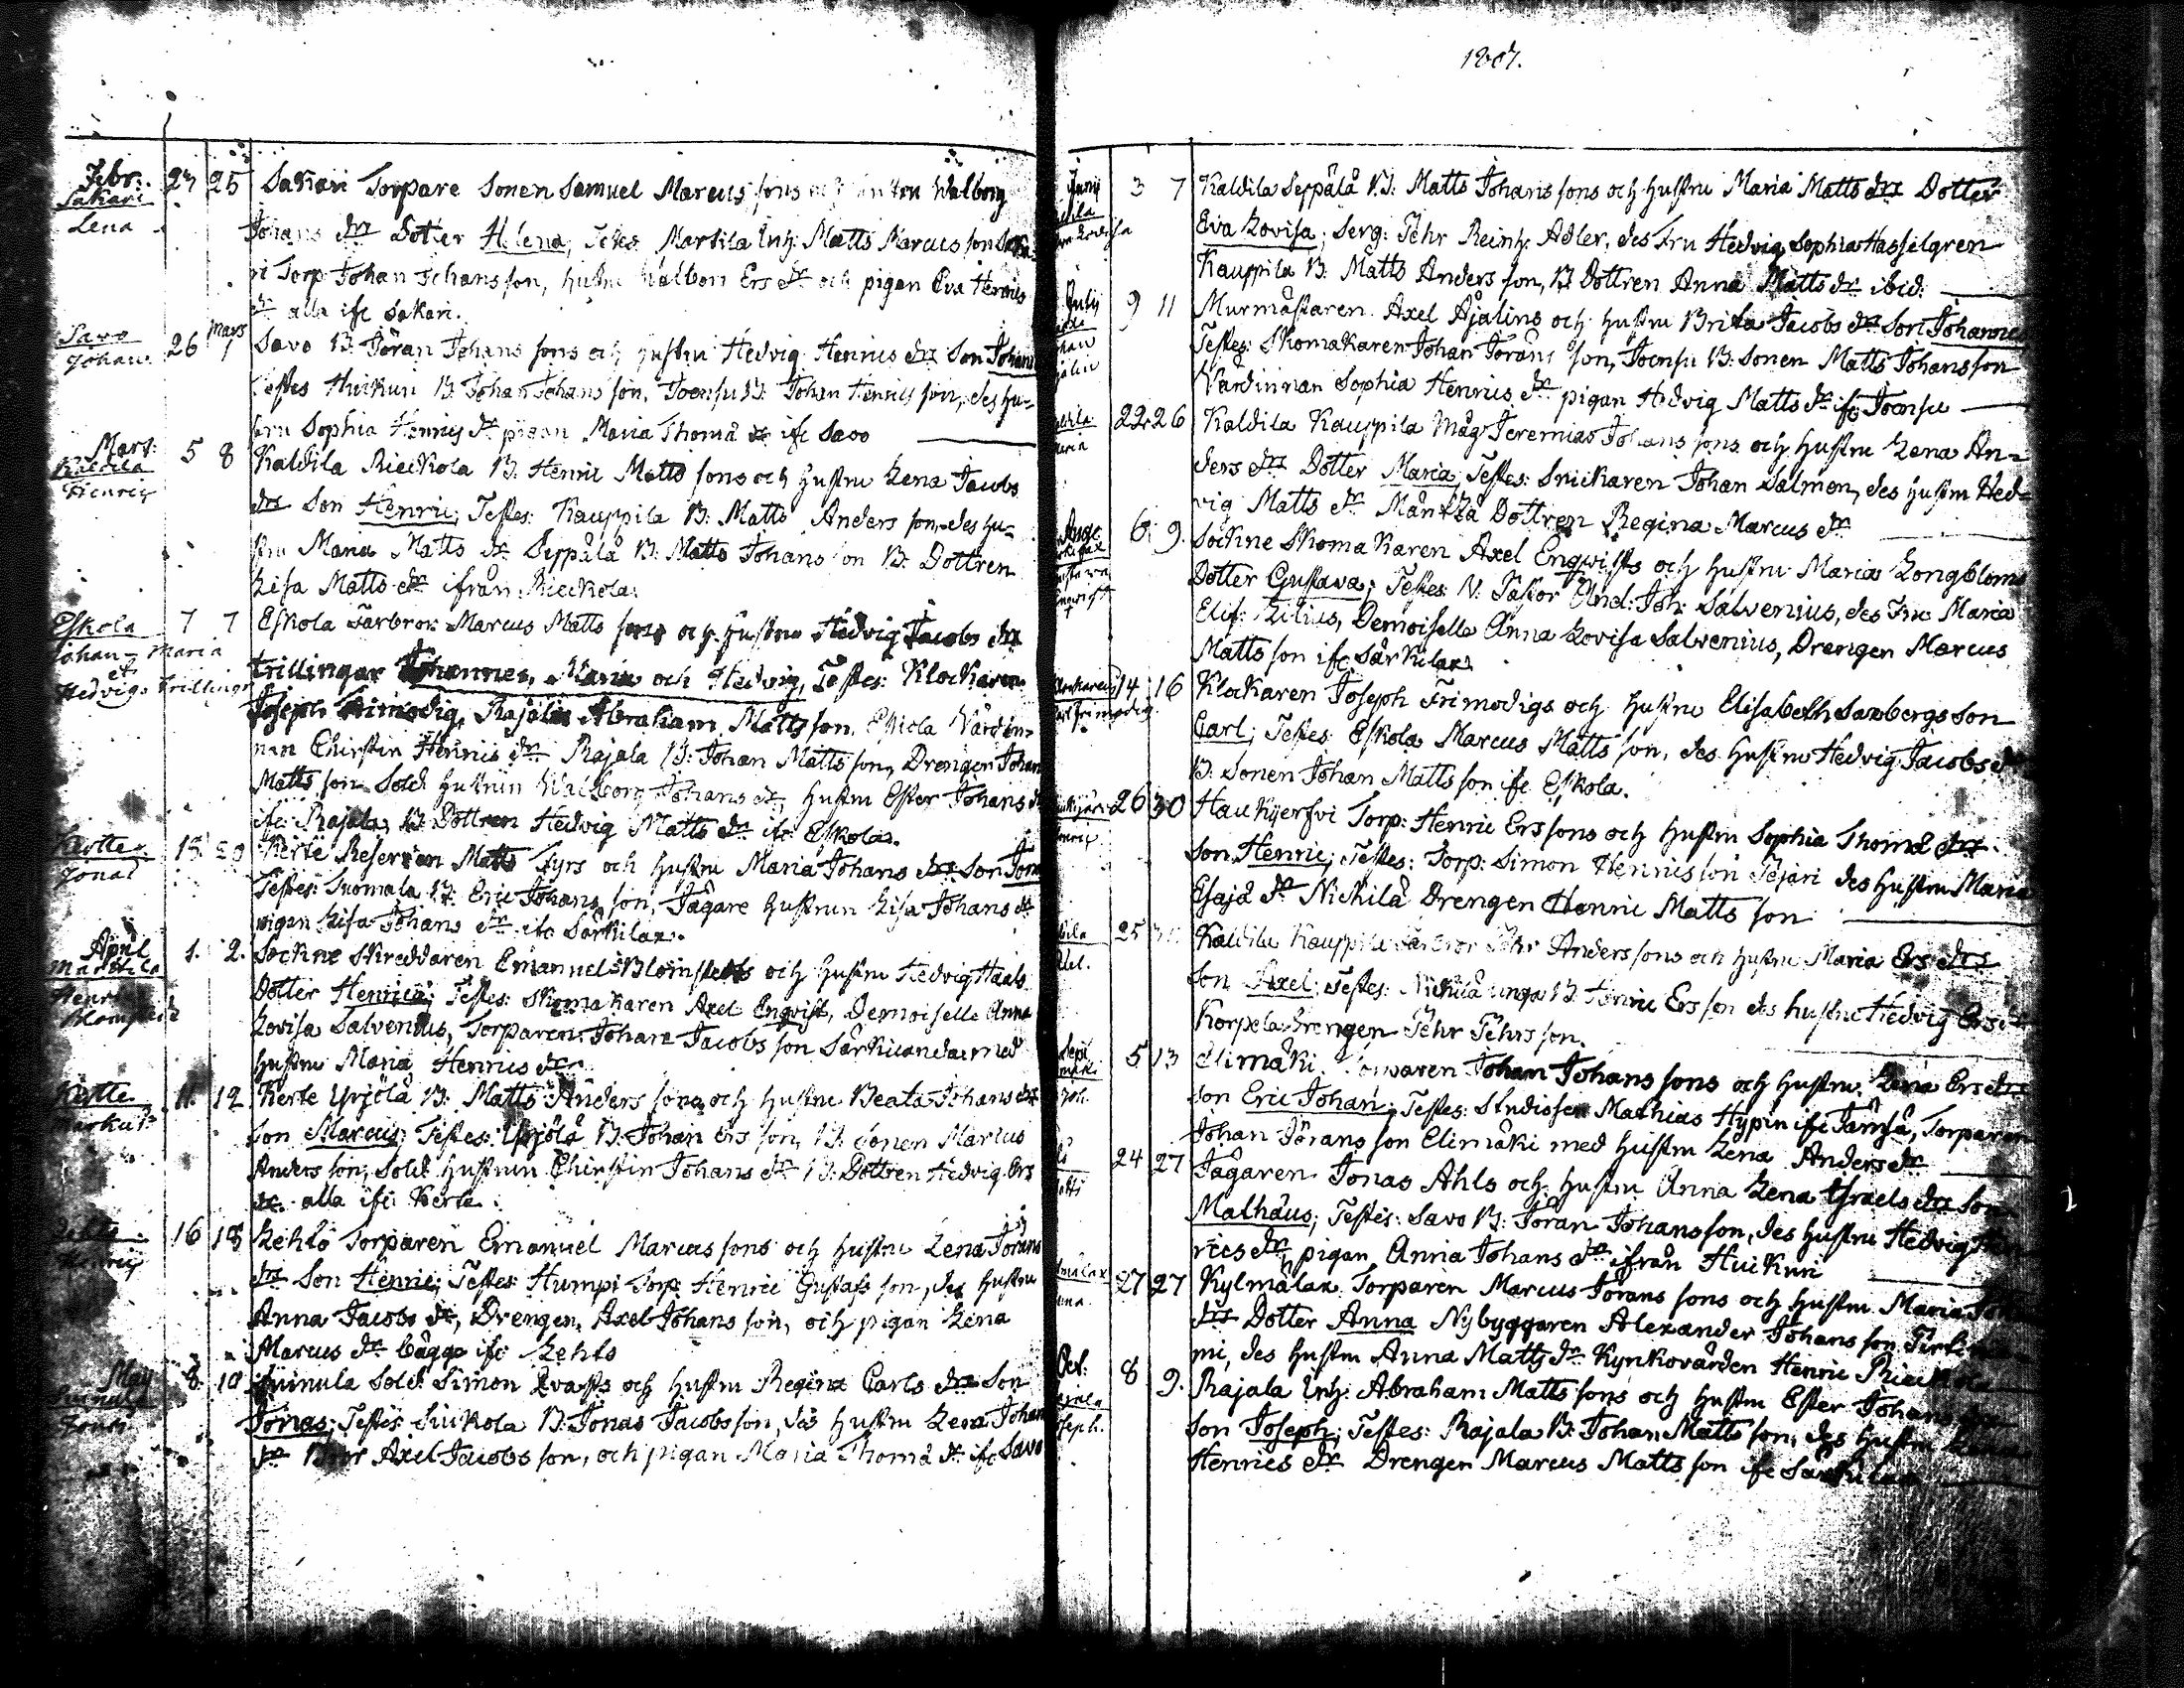 Febr. 24 25 Sakari Torpare Sonen Samuel Marcus sons och hustru Walborg
Sakari
Lena
Johans drs Dotter Helena, Testes Martila Inh: Matts Marcus son Saka-
ri Torp: Johan Johansson, hustru Walborg Ers dr och pigan Eva Henrics
dr alla ifr Sakari.
Savo Johan 26 Mars 1 Savo B. Jöran Johans sons och hustru Hedvig Henrics drs Son Johan
Testes Huikuri B. Johan Johans son, Joensu B: Johan Henrics son, des hu-
stru Sophia Henrics dr pigan Maria Thomæ dr ifr Savo
Mars: 5 8 Kaldila Rieckola B: Henric Matts sons och hustru Lena Jacobs
Kaldila
Henric
drs Son Henric; Testes: Kauppila B: Matts Anders son, des hu-
stru Maria Matts dr Seppälä B: Matts Johans son B: Dottren
Lisa Matts dr ifrån Rieckola:
Eskola 7 7 Eskola Farbror Marcus Matts sons och hustru Hedvig Jacobs drs
Johan - Maria
et
Hedvig: trillingr
trillingar Johannes, Maria och Hedvig, Testes: Klockaren
Joseph Frimodig, Rajala Abraham Matts son, Eskola Värdin-
nan Christin Henrics dr Rajala B: Johan Matts son, Drengen Johan
Matts son Sold hustrun Walborg Johans dr, hustru Ester Johans dr
ifr Rajala, B: Dottren Hedvig Matts dr ifr Eskola.
Kertte 18 20 Kerte Reserven Matts Fyrs och hustru Maria Johans drs Son Jonas
Jonas
Testes: Suomala B: Eric Johans son, Jägare hustrun Lisa Johans dr
pigan Lisa Johans dr ifr Särkilax.
April 1. 2. Sockne Skreddaren Emanuel Blomstedts och hustru Hedvig Haals
Marttila
Henr:
Blomstedt
Dotter Henrica; Testes: Skomakaren Axel Engvist, Demoiselle Anna
Lovisa Salvenius, Torparen Johan Jacobs son med
hustru Maria Henrics dr
Kertte 11. 12 Kerte Yrjölä B: Matts Anders sons och hustru Beata Johans drs
Markus
Son Marcus; Testes: Yrjölä B: Johan Ers son, B: Sonen Marcus
Anders son, Sold: hustrun Christin Johans dr B: Dottren Hedvig Ers
dr alla ifr Kerte.
16 18 Lehto Torparen Emanuel Marcus sons och hustru Lena Jörans
Henric
drs Son Henric; Testes: Humpi Torp: Henric Gustafs son, des hustru
Anna Jacobs dr, Drengen Axel Johans son, och pigan Lena
Marcus dr bägge ifr Lehto
May 8 10 Sold: Simon Qvasts och hustru Regina Carls drs Son
Jonas
Jonas; Testes Siukola B: Jonas Jacobs son, des hustru Lena Johans
dr Bror Axel Jacobs son, och pigan Maria Thomæ dr ifr Savo
1807.
Junii 3 7 Kaldila Seppälä B: Matts Johans sons och hustru Maria Matts drs Dotter
Eva Lovisa; Serg: Pehr Reinh: Adler, des Fru Hedvig Sophia Hasselgren
Kauppila B: Matts Anders son, B Dottren Anna Matts dr ibid:
Julii 9 11 Murmästaren Axel Ajalins och hustru Brita Jacobs drs Son Johannes
Testes: Skomakaren Johan Jörans son, Joensu B: Sonen Matts Johans son
Värdinnan Sophia Henrics dr pigan Hedvig Matts dr ifr Joensu
22 26 Kaldila Kauppila Måg Jeremias Johans sons och hustru Lena An-
ders drs Dotter Maria, Testes: Snickaren Johan Salmen, des hustru Hed-
vig Matts dr Mänttä Dottren Regina Marcus dr
Aug: 6. 9. Sockne Skomakaren Axel Engwists och hustru Maria Longbloms
Dotter Gustava; Testes: V: Pastor And: Joh: Salvenius, des Fru Maria
Elis: Lilius, Demoiselle Anna Lovisa Salvenius, Drengen Marcus
Matts son ifr Särkilax.
Klockaren 14 16 Klockaren Joseph Frimodigs och hustru Elisabeth Saxbergs Son
Carl Frimodig
Carl; Testes Eskola Marcus Matts son, des hustru Hedvig Jacobs dr
B: Sonen Johan Matts son ifr Eskola.
26 30 Haukijerfvi Torp: Henric Ers sons och hustru Sophia Thomæ drs
Son Henric; Testes: Torp: Simon Henrics son Pejari des hustru Maria
Esajæ dr Nickilä Drengen Henric Matts son
25 Kaldila Kauppila Farbror Pehr Anders sons och hustru Maria Ers drs
Son Axel; Testes: Nickilä unga B: Henric Ers son des hustru Hedvig Ers dr
Korpela Drengen Pehr Pehrs son.
Sept 5 13 Elimäki Johan Johans sons och hustru Lena Ers drs
Son Eric Johan; Testes: Studiosen Mathias Hypin ifr Jämsä, Torparen
Johan Jörans son Elimäki med hustru Lena Anders dr
24 27 Jägaren Jonas Ahls och hustru Anna Lena Israels drs Son
Mathäus; Testes: Savo B: Jöran Johansson, des hustru Hedvig Hen-
rics dr pigan Anna Johans dr ifrån Huikuri
27 27 Kylmälax Torparen Marcus Jörans sons och hustru Maria Joh
drs Dotter Anna Nybyggaren Alexander Johans son
mi, des hustru Anna Matts dr Kynkovärden Henric Rieckola
Oct: 8 9. Rajala Inh: Abraham Matts sons och hustru Ester Johans drs
Joseph.
Son Joseph; Testes: Rajala B: Johan Matts son, des hustru
Henrics dr Drengen Marcus Matts son ifr Särkilax